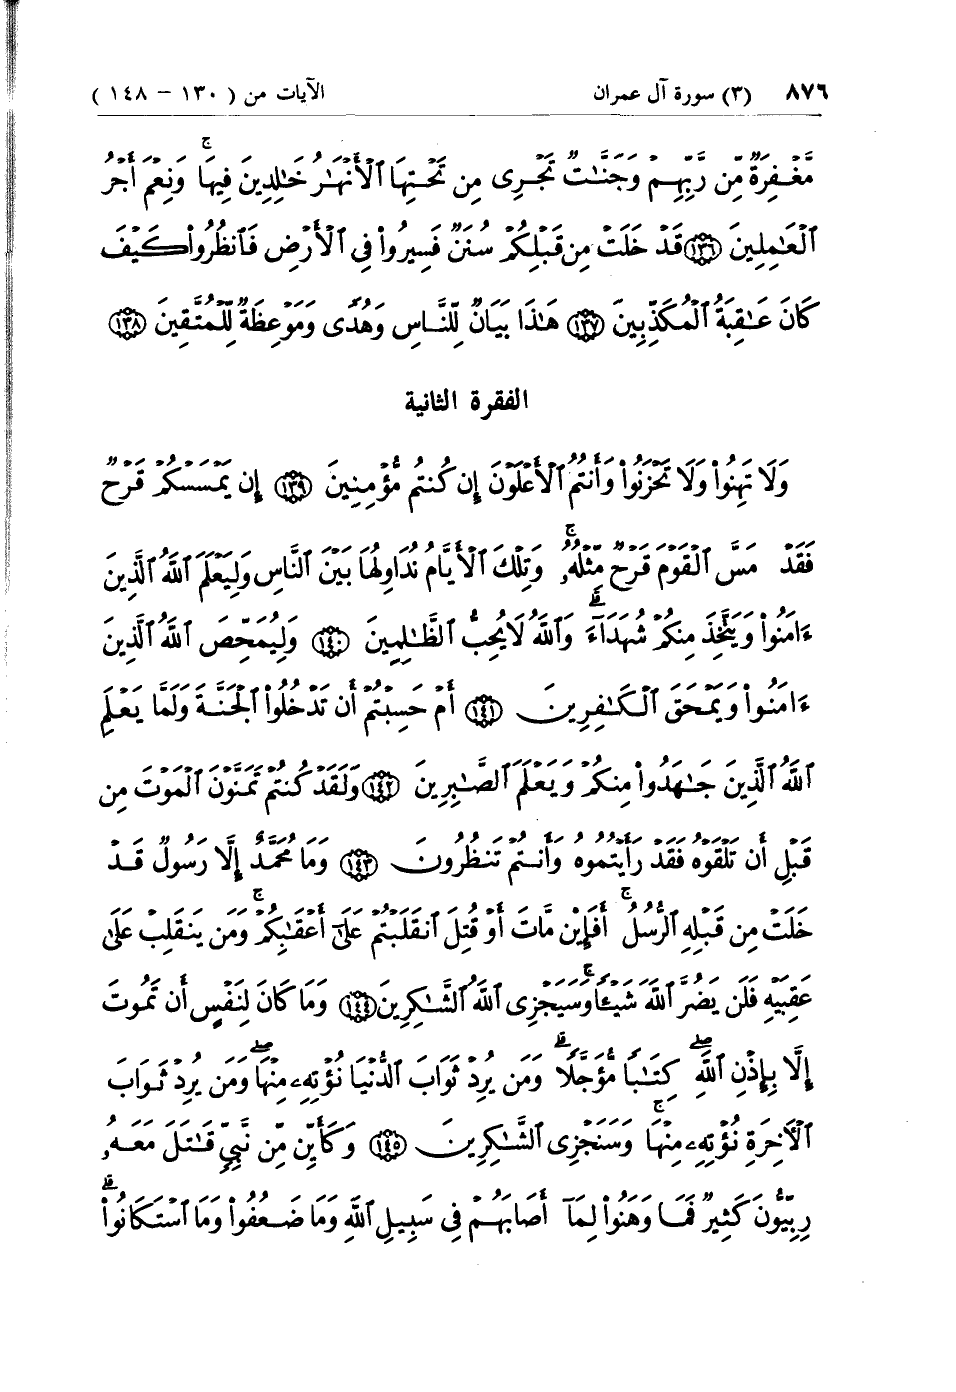 ٨٧٦ (٣) سورة آل عمران الآيات من ( ١٣٠ – ١٤٨ )
مَّغْفِرَةٌ مِّن رَّبِّهِمْ وَجَنَّٰتٌ تَجْرِى مِن تَحْتِهَا ٱلْأَنْهَٰرُ خَٰلِدِينَ فِيهَا ۚ وَنِعْمَ أَجْرُ
ٱلْعَٰمِلِينَ ﴿١٣٦﴾ قَدْ خَلَتْ مِن قَبْلِكُمْ سُنَنٌ فَسِيرُوا۟ فِى ٱلْأَرْضِ فَٱنظُرُوا۟ كَيْفَ
كَانَ عَٰقِبَةُ ٱلْمُكَذِّبِينَ ﴿١٣٧﴾ هَٰذَا بَيَانٌ لِّلنَّاسِ وَهُدًى وَمَوْعِظَةٌ لِّلْمُتَّقِينَ ﴿١٣٨﴾
الفقرة الثانية
وَلَا تَهِنُوا۟ وَلَا تَحْزَنُوا۟ وَأَنتُمُ ٱلْأَعْلَوْنَ إِن كُنتُم مُّؤْمِنِينَ ﴿١٣٩﴾ إِن يَمْسَسْكُمْ قَرْحٌ
فَقَدْ مَسَّ ٱلْقَوْمَ قَرْحٌ مِّثْلُهُۥ ۚ وَتِلْكَ ٱلْأَيَّامُ نُدَاوِلُهَا بَيْنَ ٱلنَّاسِ وَلِيَعْلَمَ ٱللَّهُ ٱلَّذِينَ
ءَامَنُوا۟ وَيَتَّخِذَ مِنكُمْ شُهَدَآءَ ۗ وَٱللَّهُ لَا يُحِبُّ ٱلظَّٰلِمِينَ ﴿١٤٠﴾ وَلِيُمَحِّصَ ٱللَّهُ ٱلَّذِينَ
ءَامَنُوا۟ وَيَمْحَقَ ٱلْكَٰفِرِينَ ﴿١٤١﴾ أَمْ حَسِبْتُمْ أَن تَدْخُلُوا۟ ٱلْجَنَّةَ وَلَمَّا يَعْلَمِ
ٱللَّهُ ٱلَّذِينَ جَٰهَدُوا۟ مِنكُمْ وَيَعْلَمَ ٱلصَّٰبِرِينَ ﴿١٤٢﴾ وَلَقَدْ كُنتُمْ تَمَنَّوْنَ ٱلْمَوْتَ مِن
قَبْلِ أَن تَلْقَوْهُ فَقَدْ رَأَيْتُمُوهُ وَأَنتُمْ تَنظُرُونَ ﴿١٤٣﴾ وَمَا مُحَمَّدٌ إِلَّا رَسُولٌ قَدْ
خَلَتْ مِن قَبْلِهِ ٱلرُّسُلُ ۚ أَفَإِي۟ن مَّاتَ أَوْ قُتِلَ ٱنقَلَبْتُمْ عَلَىٰٓ أَعْقَٰبِكُمْ ۚ وَمَن يَنقَلِبْ عَلَىٰ
عَقِبَيْهِ فَلَن يَضُرَّ ٱللَّهَ شَيْـًٔا ۗ وَسَيَجْزِى ٱللَّهُ ٱلشَّٰكِرِينَ ﴿١٤٤﴾ وَمَا كَانَ لِنَفْسٍ أَن تَمُوتَ
إِلَّا بِإِذْنِ ٱللَّهِ كِتَٰبًا مُّؤَجَّلًا ۗ وَمَن يُرِدْ ثَوَابَ ٱلدُّنْيَا نُؤْتِهِۦ مِنْهَا وَمَن يُرِدْ ثَوَابَ
ٱلْـَٔاخِرَةِ نُؤْتِهِۦ مِنْهَا ۚ وَسَنَجْزِى ٱلشَّٰكِرِينَ ﴿١٤٥﴾ وَكَأَيِّن مِّن نَّبِىٍّ قَٰتَلَ مَعَهُۥ
رِبِّيُّونَ كَثِيرٌ فَمَا وَهَنُوا۟ لِمَآ أَصَابَهُمْ فِى سَبِيلِ ٱللَّهِ وَمَا ضَعُفُوا۟ وَمَا ٱسْتَكَانُوا۟ ۗ